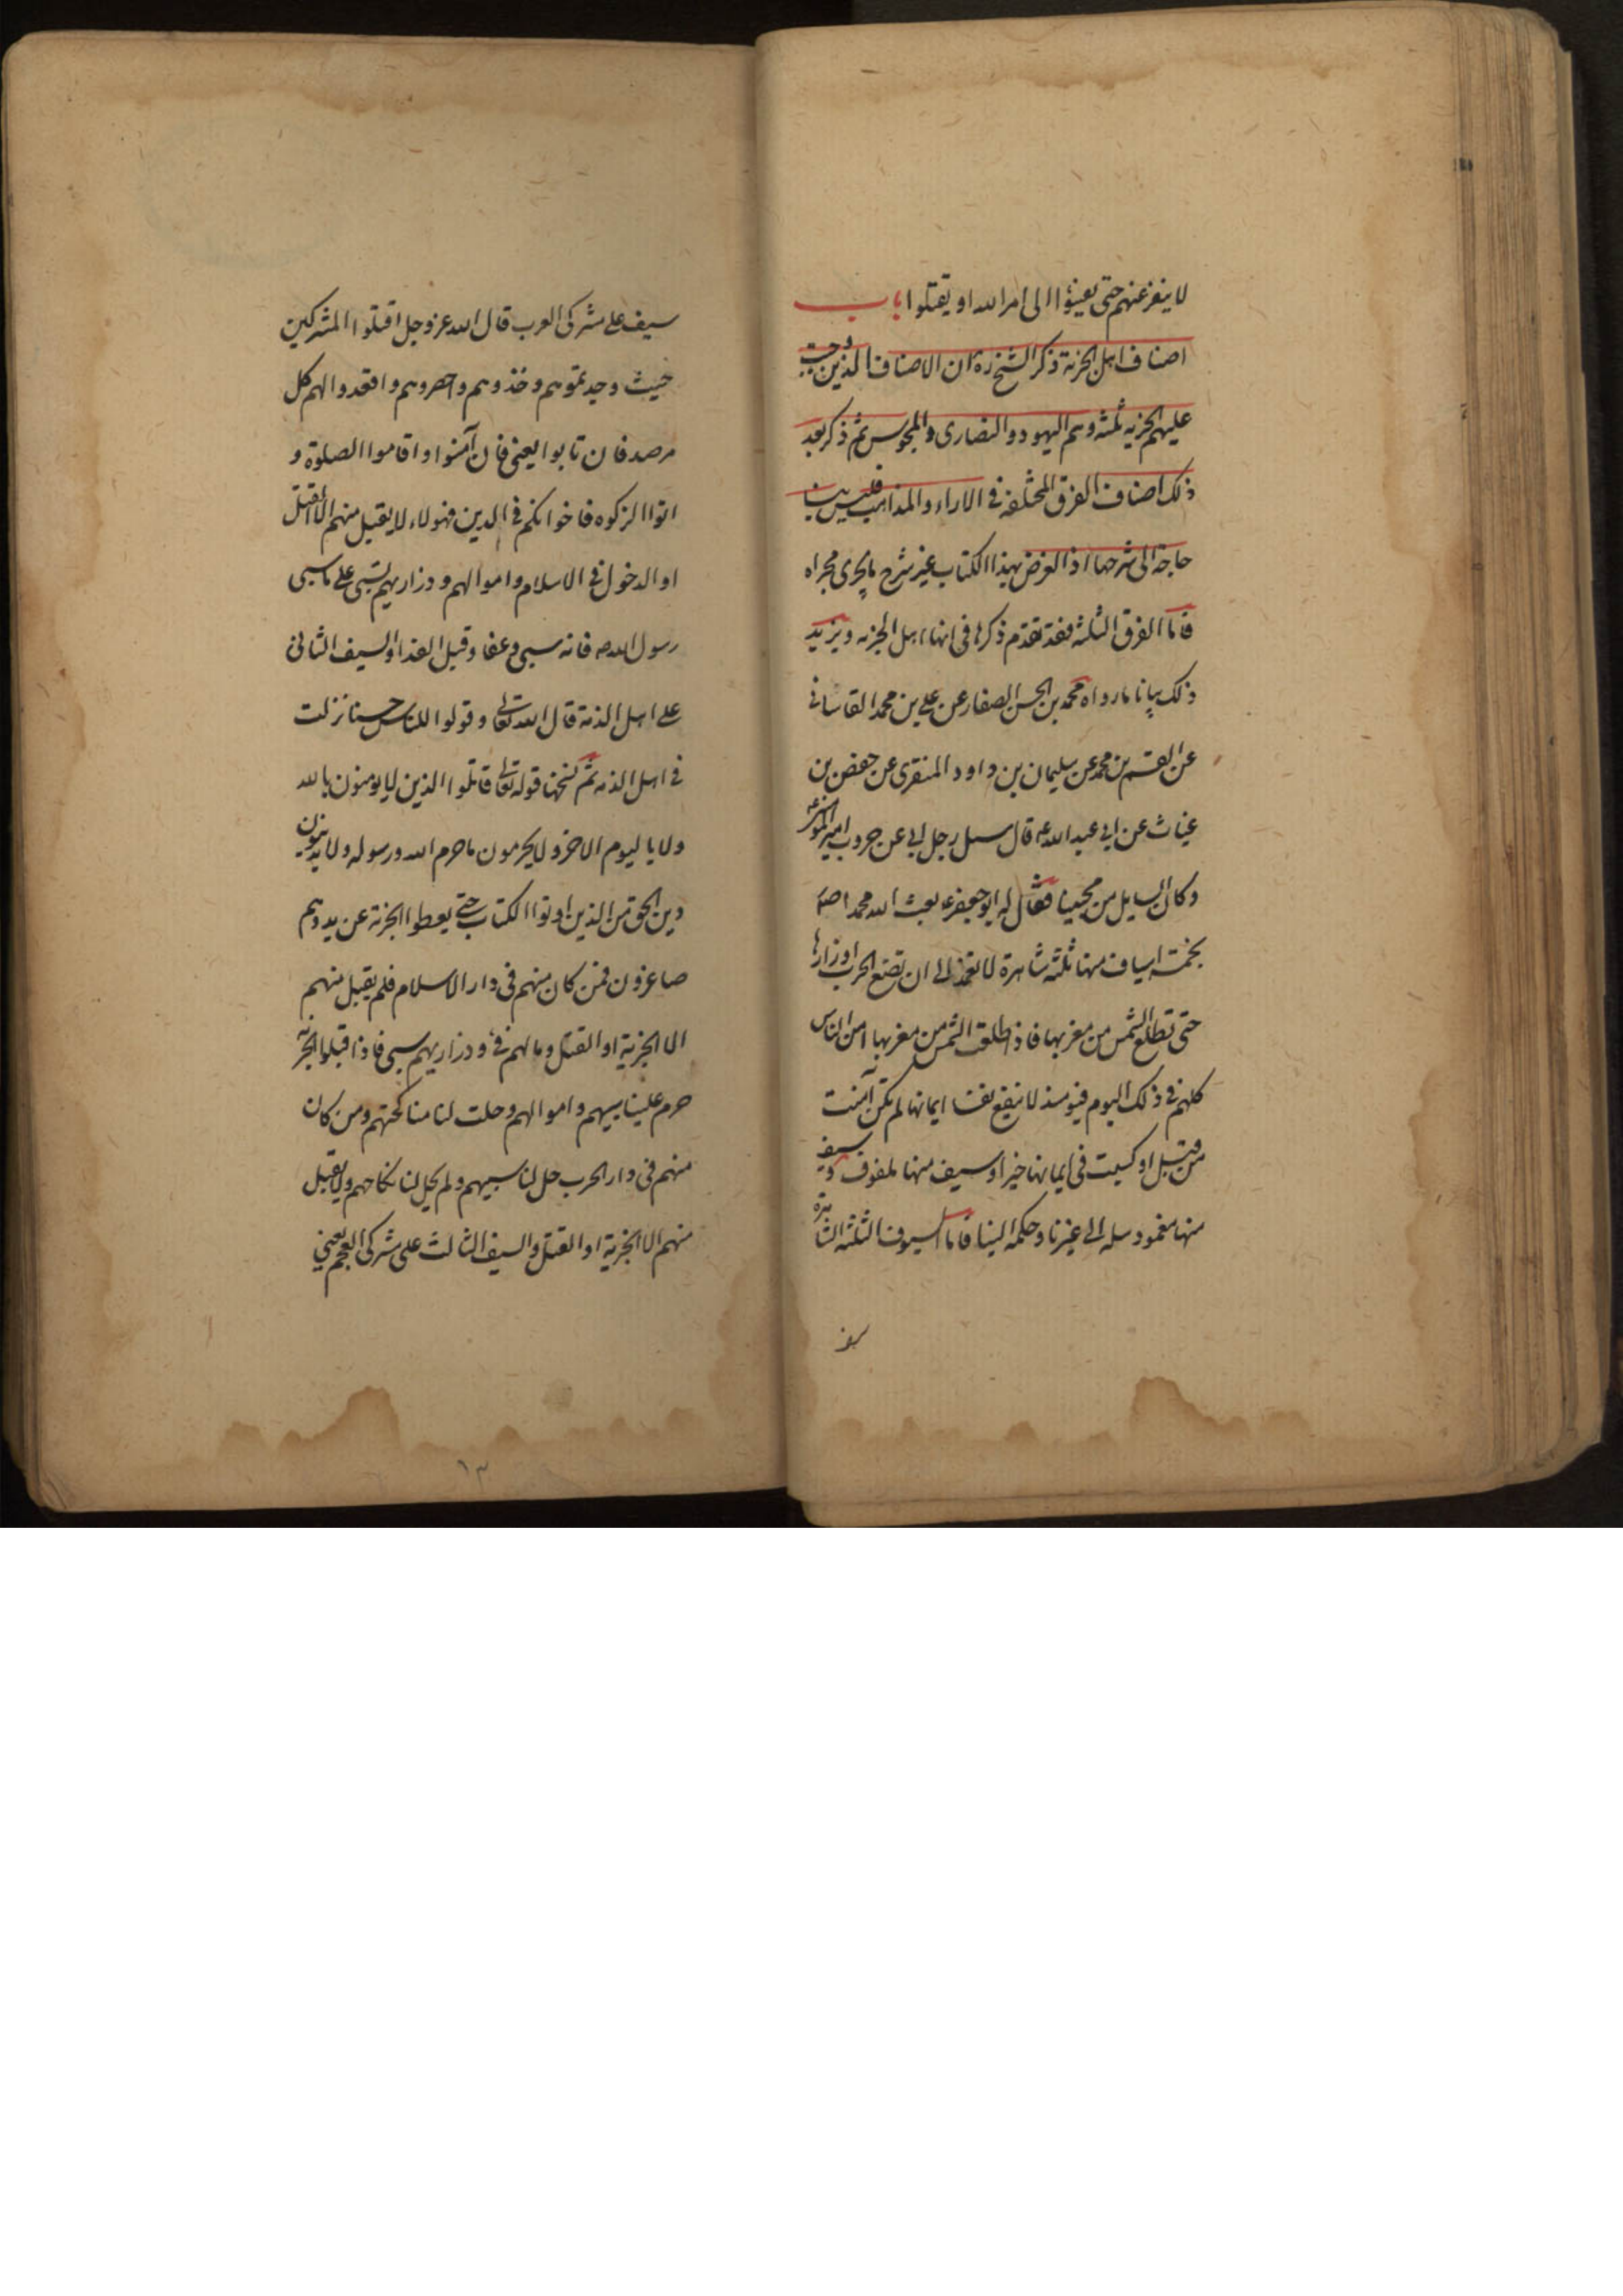 لا ينفر عنهم حتى يفيئوا الى امر الله او يقتلوا باب
اصناف اهل الجزية ذكر الشيخ ره ان الاصناف الذين وجبت
عليهم الجزيه ثلثه وهم اليهود والنصارى والمجوس ثم ذكر بعد
ذلك اصناف الفرق المختلفه في الاراء والمذاهب فليس بنا
حاجة الى شرحها اذ الغرض بهذا الكتاب غير شرح ما يجرى مجراه
فاما الفرق الثلثه فقد تقدم ذكرها في انها اهل الجزيه ويزيد
ذلك بيانا ما رواه محمد بن الحسن الصفار عن علي بن محمد القاساني
عن القسم بن محمد عن سليمان بن داود المنقرى عن حفص بن
غياث عن ابي عبد الله ع قال سئل رجل ابي عن حروب امير المؤمنين ع
وكان السايل من محبينا فقال له ابو جعفر ع بعث الله محمدا ص
بخمسة اسياف منها ثلثة شاهرة لا تغمد الى ان تضع الحرب اوزارها
حتى تطلع الشمس من مغربها فاذا طلعت الشمس من مغربها امن الناس
كلهم في ذلك اليوم فيومئذ لا ينفع نفسا ايمانها لم تكن آمنت
من قبل او كسبت في ايمانها خيرا وسيف منها ملفوف وسيف
منها مغمود سله الى غيرنا وحكمه الينا فاما السيوف الثلثه الشاهرة
سيف
سيف على مشركى العرب قال الله عز وجل اقتلوا المشركين
حيث وجدتموهم وخذوهم واحصروهم واقعدوا لهم كل
مرصد فان تابوا يعنى فان آمنوا واقاموا الصلوة و
اتوا الزكوه فاخوانكم في الدين فهولاء لا يقبل منهم الا القتل
او الدخول في الاسلام واموالهم وذراريهم تسبى على ما سبى
رسول الله ص فانه سبى وعفا وقبل الفدا والسيف الثانى
على اهل الذمة قال الله تعالى وقولوا للناس حسنا نزلت
في اهل الذمه ثم نسخها قوله تعالى قاتلوا الذين لا يومنون بالله
ولا باليوم الاخر ولا يحرمون ما حرم الله ورسوله ولا يدينون
دين الحق من الذين اوتوا الكتاب حتى يعطوا الجزية عن يد وهم
صاغرون فمن كان منهم فى دار الاسلام فلم يقبل منهم
الا الجزية او القتل ومالهم فىء وذراريهم سبى فاذا قبلوا الجزية
حرم علينا سبيهم واموالهم وحلت لنا مناكحتهم ومن كان
منهم فى دار الحرب حل لنا سبيهم ولم يحل لنا نكاحهم ولا يقبل
منهم الا الجزية او القتل والسيف الثالث على مشركى العجم يعنى
١٣